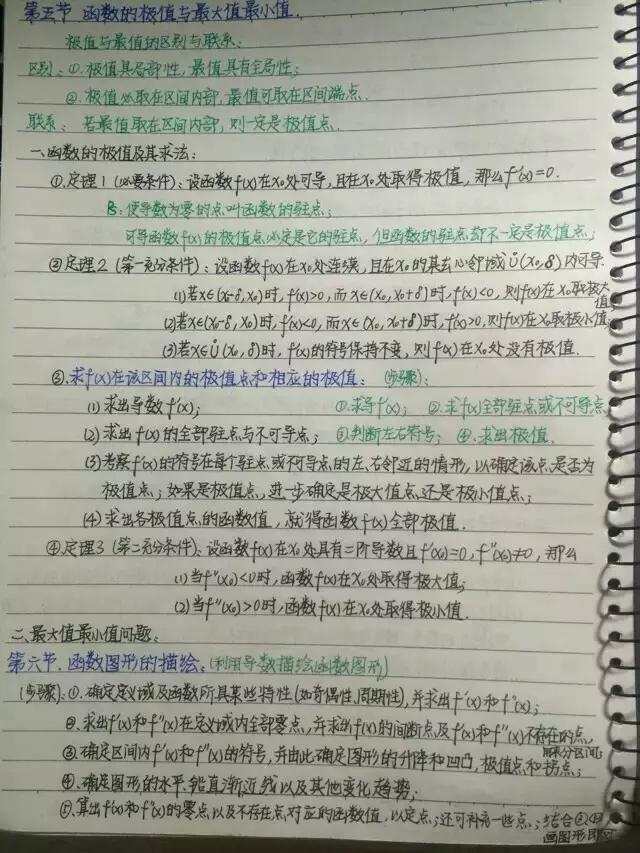 第五节 函数的极值与最大值最小值.
极值与最值的区别与联系:
区别: ①.极值具局部性, 最值具有全局性;
②.极值必取在区间内部, 最值可取在区间端点.
联系: 若最值取在区间内部, 则一定是极值点.
一.函数的极值及其求法:
①.定理1 (必要条件): 设函数f(x)在x₀处可导, 且在x₀处取得极值, 那么f'(x)=0.
使导数为零的点叫函数的驻点;
可导函数f(x)的极值点必定是它的驻点, 但函数的驻点却不一定是极值点;
②定理2 (第一充分条件): 设函数f(x)在x₀处连续, 且在x₀的某去心邻域Ů(x₀,δ)内可导.
(1)若x∈(x₀-δ,x₀)时, f'(x)>0, 而x∈(x₀,x₀+δ)时, f'(x)<0, 则f(x)在x₀取极大值;
(2)若x∈(x₀-δ,x₀)时, f'(x)<0, 而x∈(x₀,x₀+δ)时, f'(x)>0, 则f(x)在x₀取极小值
(3)若x∈Ů(x₀,δ)时, f'(x)的符号保持不变, 则f(x)在x₀处没有极值.
③.求f(x)在该区间内的极值点和相应的极值: (步骤):
(1) 求出导数f'(x); ①.求导f'(x); ②.求f'(x)全部驻点或不可导点
(2) 求出f'(x)的全部驻点与不可导点; ③判断左右符号; ④.求出极值.
(3)考察f'(x)的符号在每个驻点或不可导点的左、右邻近的情形, 以确定该点是否为
极值点; 如果是极值点, 进一步确定是极大值点还是极小值点;
(4)求出各极值点的函数值, 就得函数f(x)全部极值.
④定理3 (第二充分条件): 设函数f(x)在x₀处具有二阶导数且f'(x₀)=0, f"(x₀)≠0, 那么
(1)当f"(x₀)<0时, 函数f(x)在x₀处取得极大值;
(2)当f"(x₀)>0时, 函数f(x)在x₀处取得极小值.
二.最大值最小值问题:
第六节.函数图形的描绘: (利用导数描绘函数图形)
(步骤): ①.确定定义域及函数所具某些特性(如奇偶性.周期性), 并求出f'(x)和f"(x);
②.求出f'(x)和f"(x)在定义域内全部零点, 并求出f(x)的间断点及f'(x)和f"(x)不存在的点,
划分区间;
③确定区间内f'(x)和f"(x)的符号, 并由此确定图形的升降和凹凸, 极值点和拐点;
④.确定图形的水平.铅直渐近线以及其他变化趋势;
⑤.算出f'(x)和f"(x)的零点以及不存在点对应的函数值, 以定点; 还可补充一些点; 结合③④
画图形即可